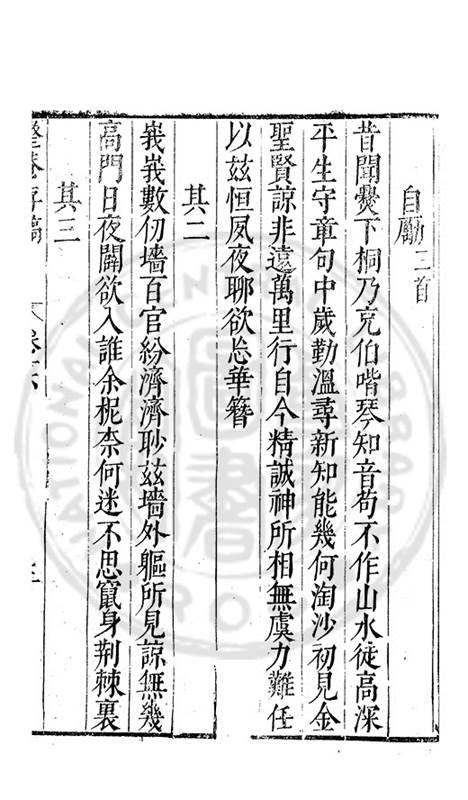 自勵三首
昔聞爨下桐乃充伯喈琴知音苟不作山水徒高深
平生守章句中歲勤溫尋新知能幾何淘沙初見金
聖賢諒非遠萬里行自今精誠神所相無虞力難任
以茲恒夙夜聊欲忘華簪
其二
峩峩數仞墻百官紛濟濟眇茲墻外軀所見諒無幾
高門日夜闢欲入誰余柅柰何迷不思竄身荆棘裏
其三
存稿